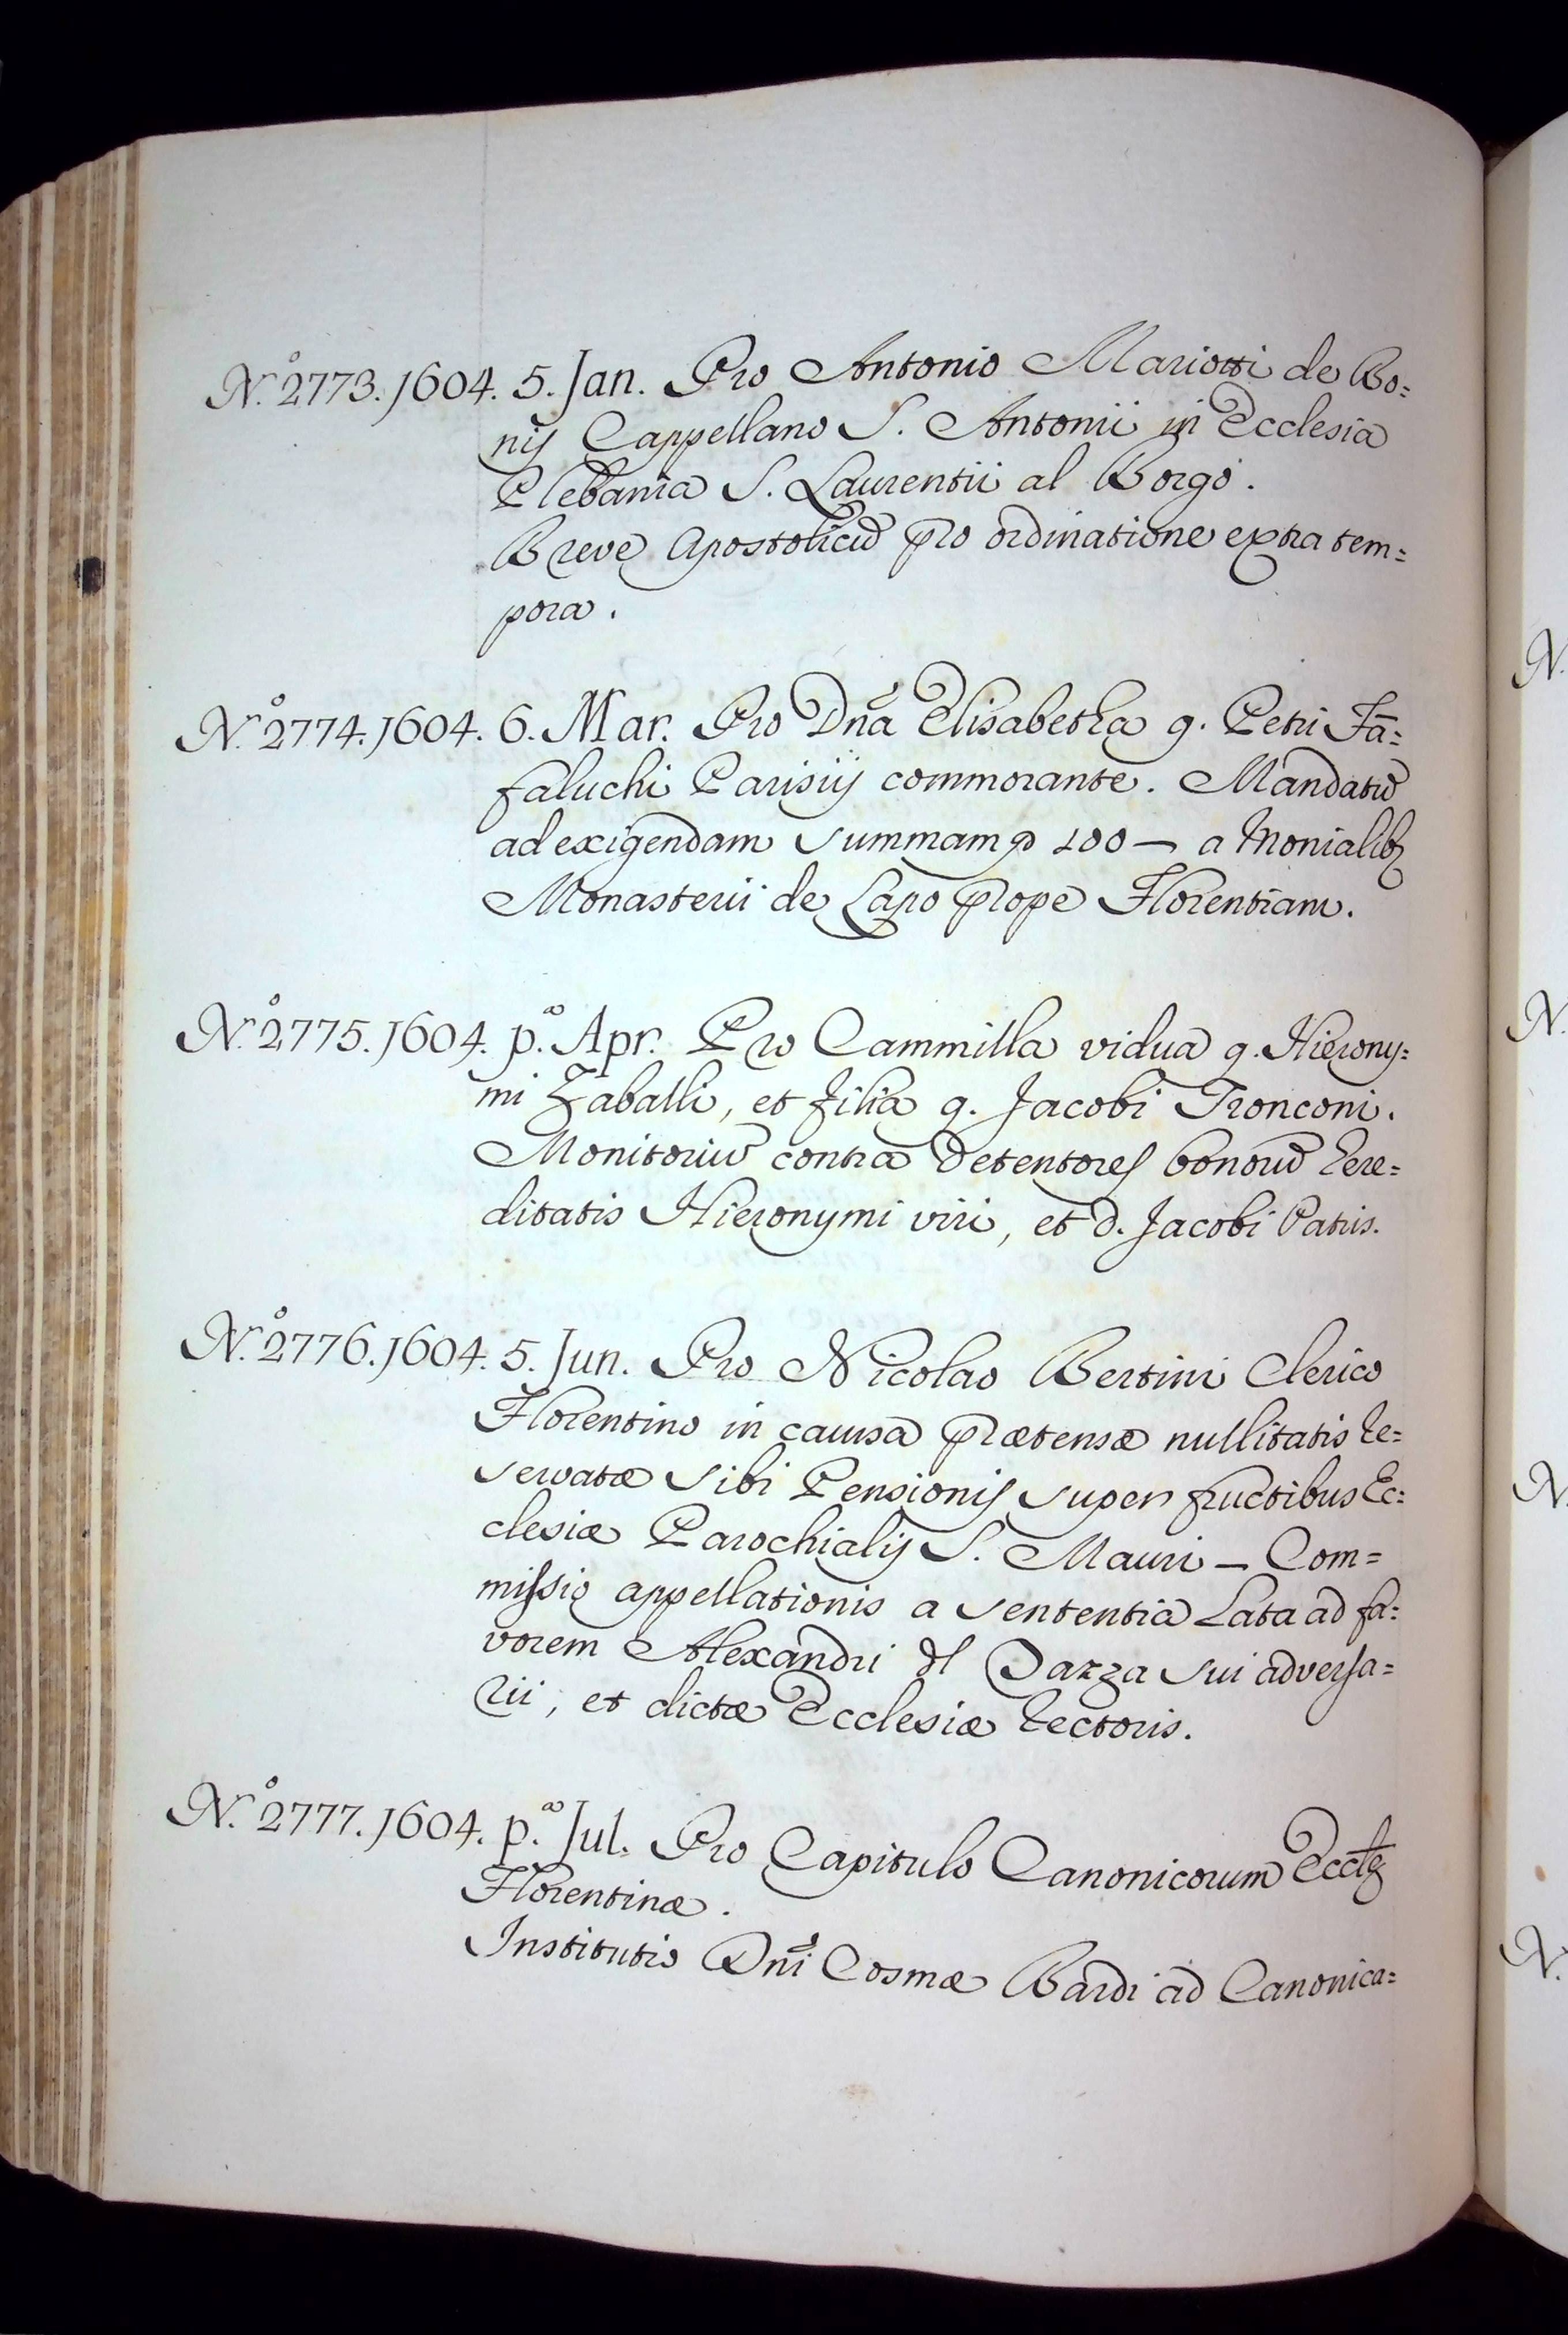 N.º 2773. 1604. 5. Jan. Pro Antonio Mariotti de Bo=
nis Cappellano S. Antonii in Ecclesia
Plebania S. Laurentii al Borgo.
Breve Apostolicũ pro ordinatione extra tem=
pora.
N.º 2774. 1604. 6. Mar. Pro Dña Elisabetha q. Petri Fã=
faluchi Parisiis commorante. Mandatũ
ad exigendam summam 100 — a Monialibȝ
Monasterii de Lapo prope Florentiam.
N.º 2775. 1604. p.ª Apr. Pro Cammilla vidua q. Hierony=
mi Zaballi, et filia q. Jacobi Tronconi.
Monitoriũ contra detentores bonorũ here=
ditatis Hieronymi viri, et d. Jacobi Patris.
N.º 2776. 1604. 5. Jun. Pro Nicolao Bertini Clerico
Florentino in causa prætensæ nullitatis re=
servatæ sibi Pensionis super fructibus Ec=
clesiæ Parochialis S. Mauri — Com=
missio appellationis a sententia lata ad fa=
vorem Alexandri dl Dazza sui adversa=
rii, et dictæ Ecclesiæ rectoris.
N.º 2777. 1604. p.ª Jul. Pro Capitulo Canonicorum Eccłȩ
Florentinæ.
Institutio Dñi Cosmæ Bardi ad Canonica=
N.
N.
N.
N.